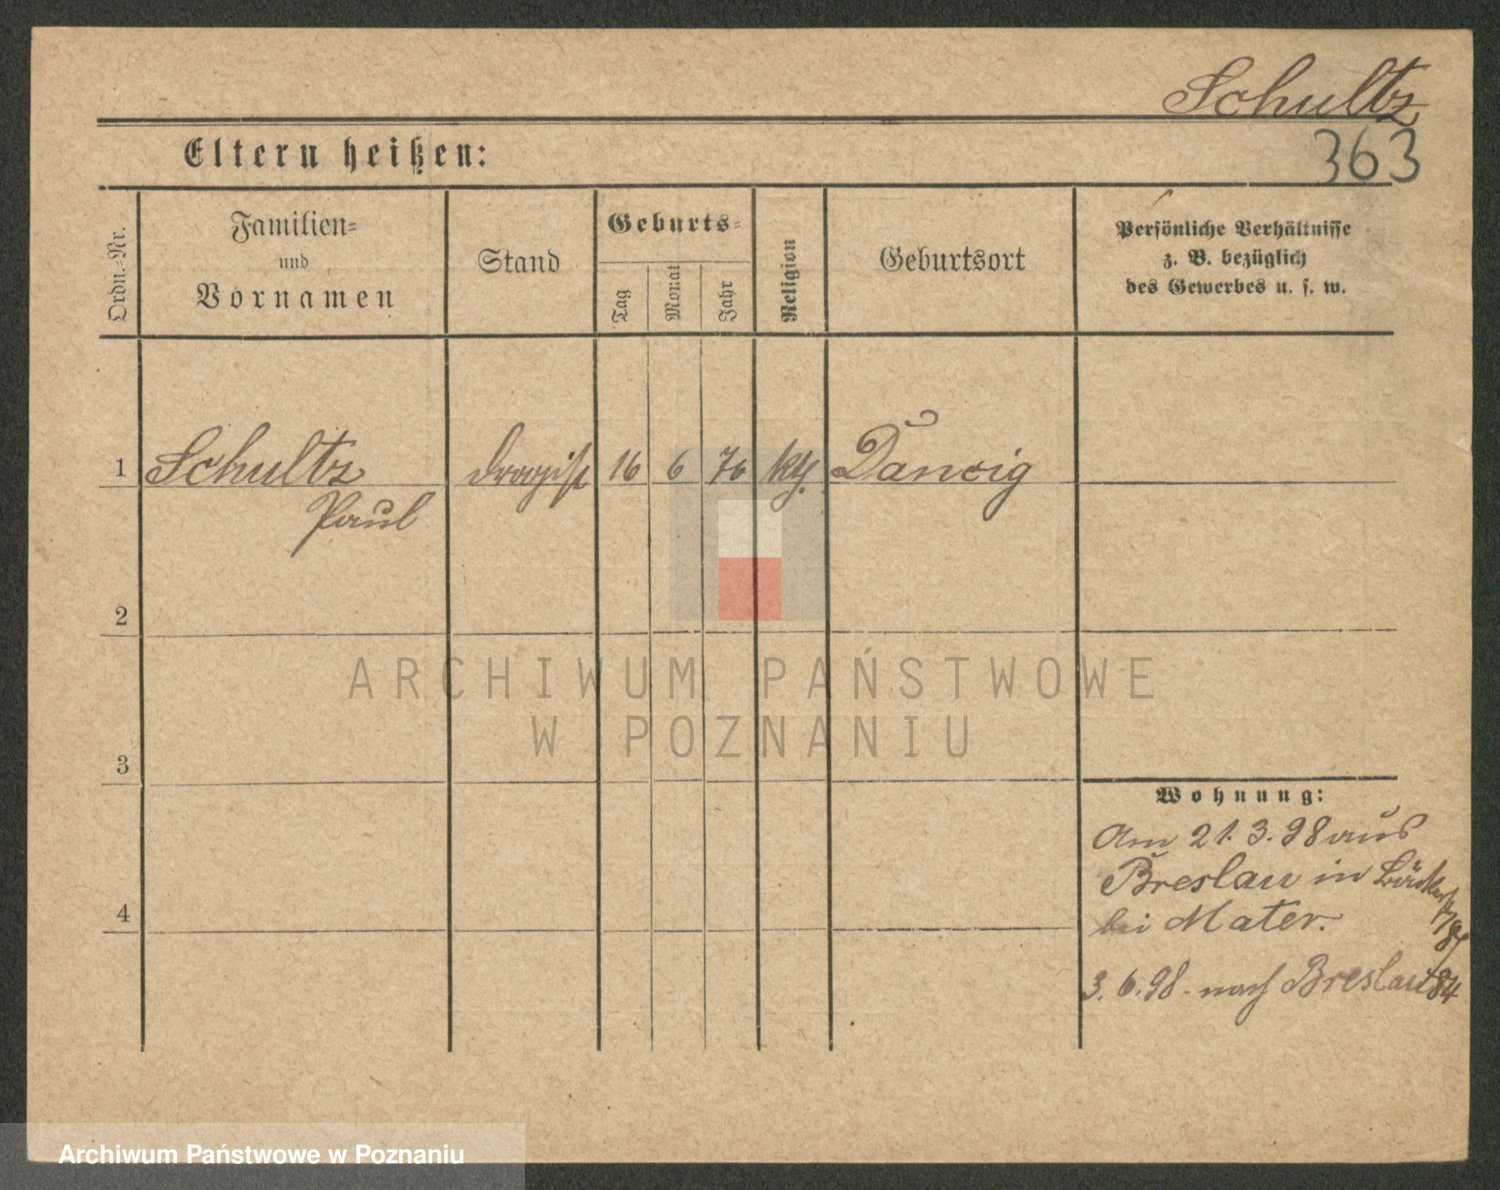 Schultz
363
Eltern heißen:
Ordn.-Nr.
Familien-
und
Vornamen
Stand
Geburts-
Tag
Monat
Jahr
Religion
Geburtsort
Persönliche Verhältnisse
z. B. bezüglich
des Gewerbes u. s. w.
1 Schultz Drogist 16 6 76 kth. Danzig
Paul
2
3
4
Wohnung:
Am 21.3.98 aus
Breslau in
bei Mater.
3.6.98 - nach Breslau 84
ARCHIWUM PAŃSTWOWE
W POZNANIU
Archiwum Państwowe w Poznaniu